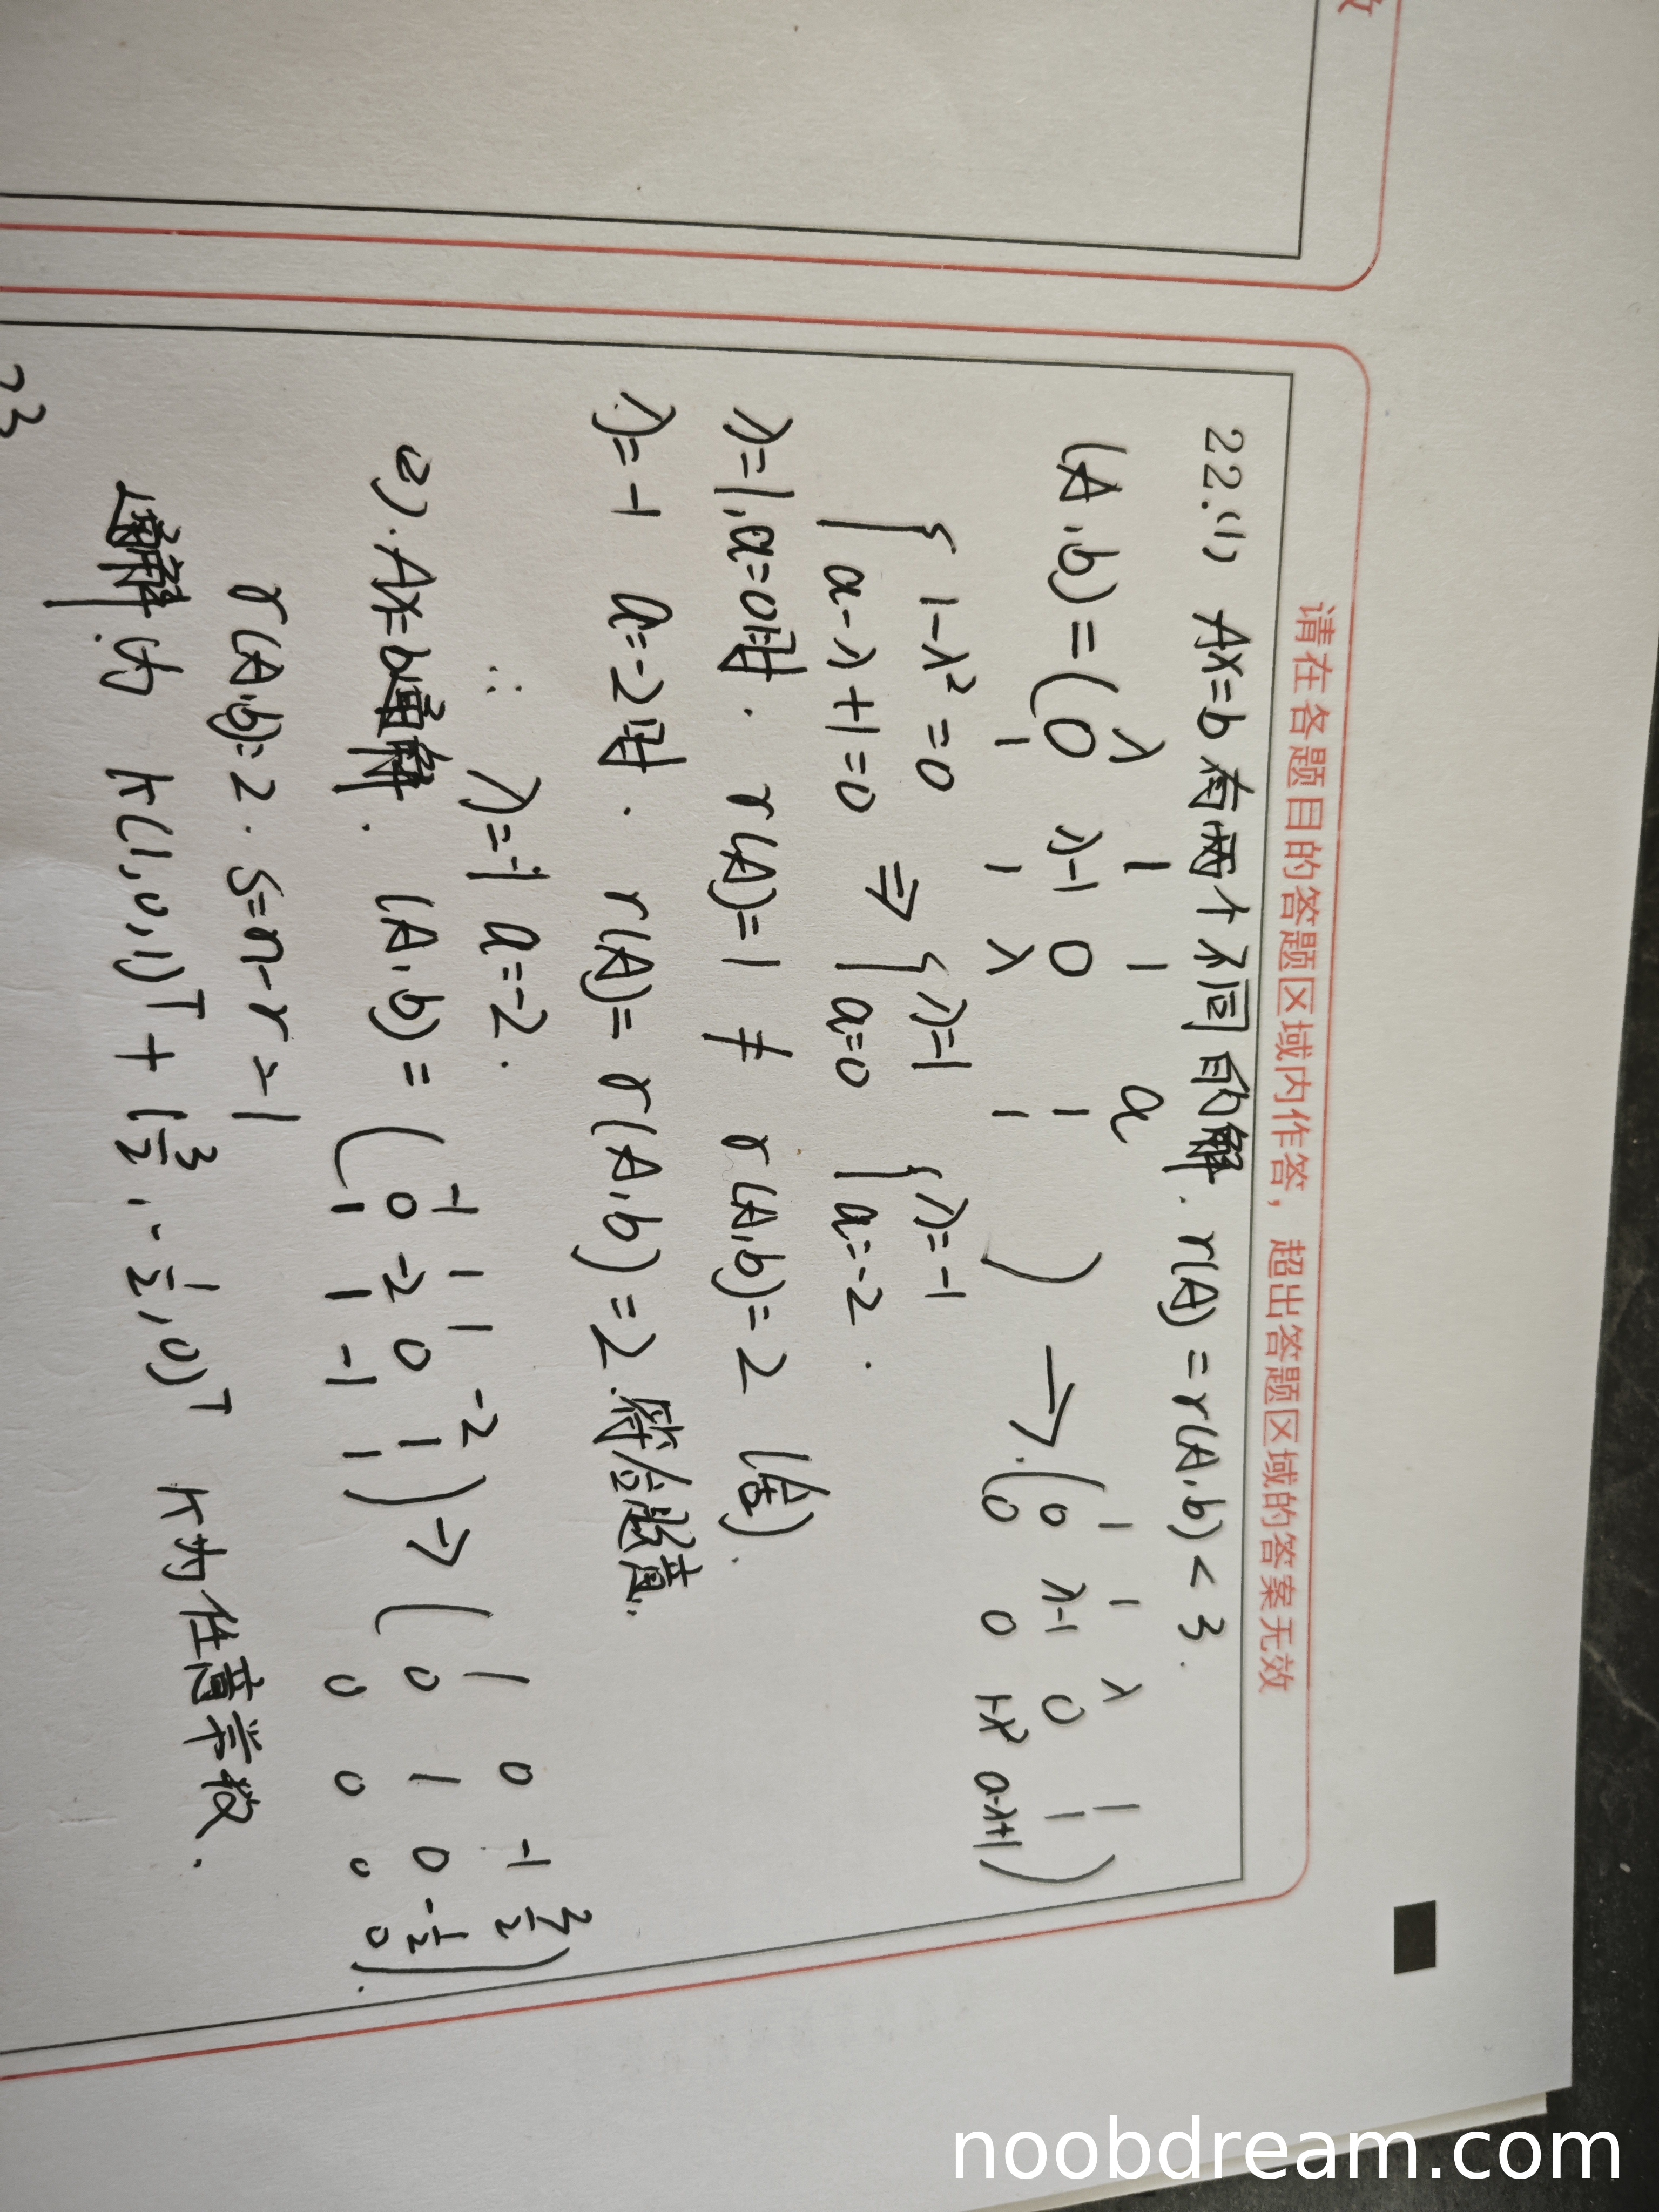 请在各题目的答题区域内作答，超出答题区域的答案无效
22.(1) Ax=b 有两个不同的解. r(A)=r(A,b)<3.
(A,b)=( λ 1 1 a
0 λ-1 0 1
1 1 λ 1 ) → ( 1 1 λ 1
0 λ-1 0 1
0 0 1-λ² a-λ+1 )
{ 1-λ²=0
a-λ+1=0 ⇒ { λ=1
a=0 { λ=-1
a=-2.
λ=1,a=0时. r(A)=1 ≠ r(A,b)=2 (舍).
λ=-1 a=-2时. r(A)=r(A,b)=2.符合题意.
∴ λ=-1 a=-2.
(2).Ax=b通解. (A,b)= ( -1 1 1 -2
0 -2 0 1
1 1 -1 1 ) → ( 1 0 -1 3/2
0 1 0 -1/2
0 0 0 0 ).
r(A,b)=2. S=n-r=1
通解为 k(1,0,1)ᵀ+(3/2,-1/2,0)ᵀ k为任意常数.
23
noobdream.com